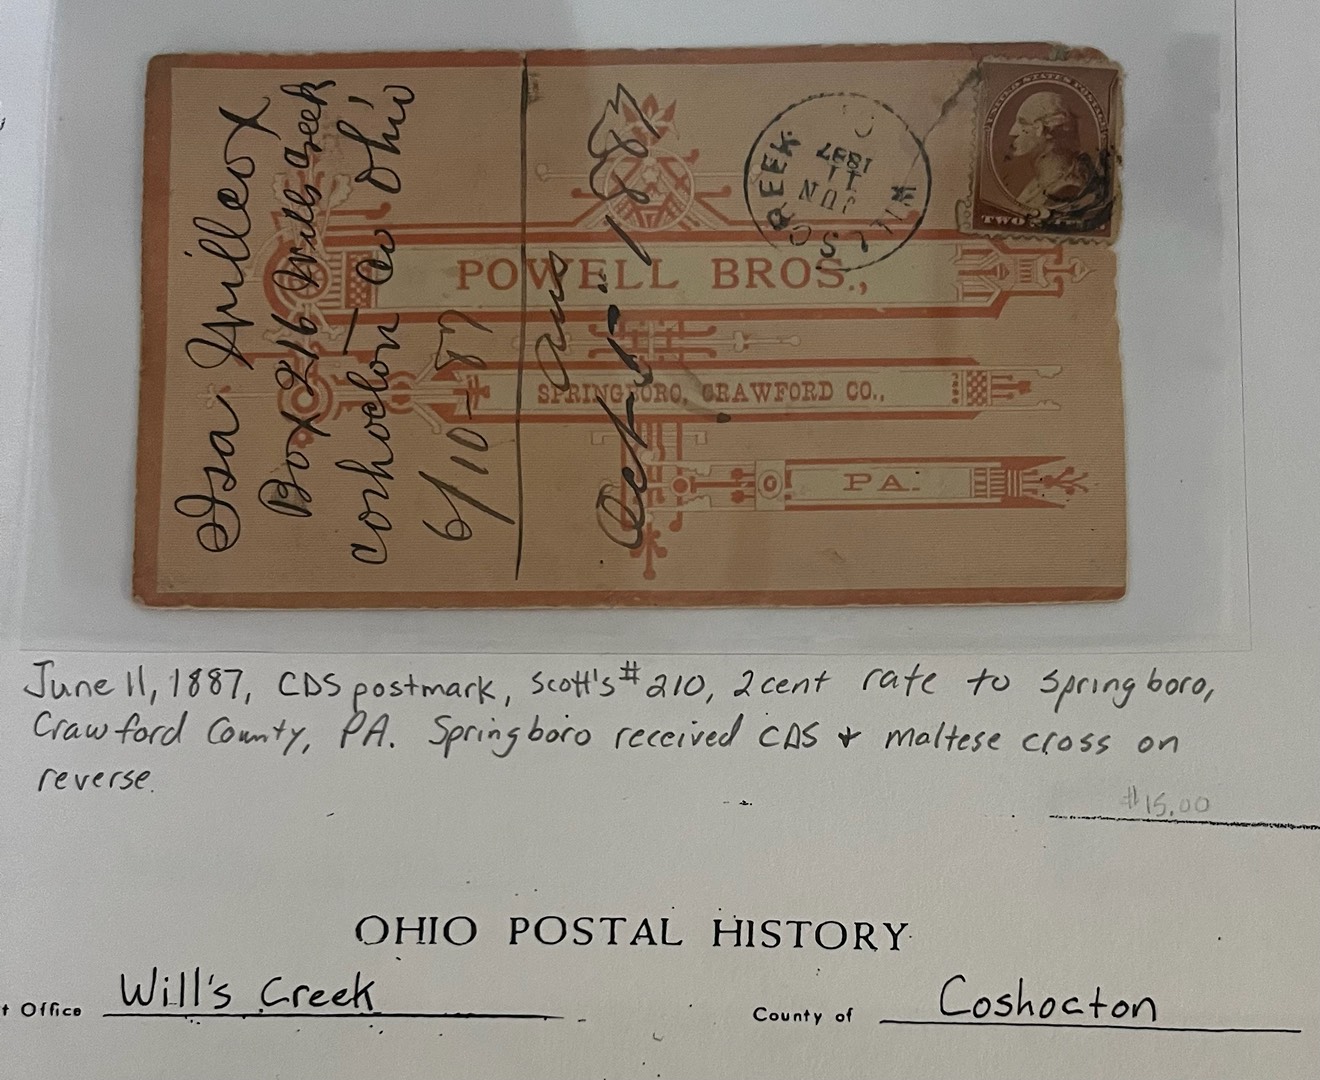 Isa Willcox
Box 216 Wills Creek
Coshocton Co Ohio
6/10-87
ans
Oct 1887
WILLS CREEK.
JUN
11
1887
UNITED STATES POSTAGE
TWO
POWELL BROS.,
SPRINGBORO, CRAWFORD CO.,
PA.
June 11, 1887, CDS postmark, Scott's # 210, 2 cent rate to Springboro,
Crawford County, PA. Springboro received CDS & maltese cross on
reverse.
$15.00
OHIO POSTAL HISTORY
t Office Will's Creek County of Coshocton